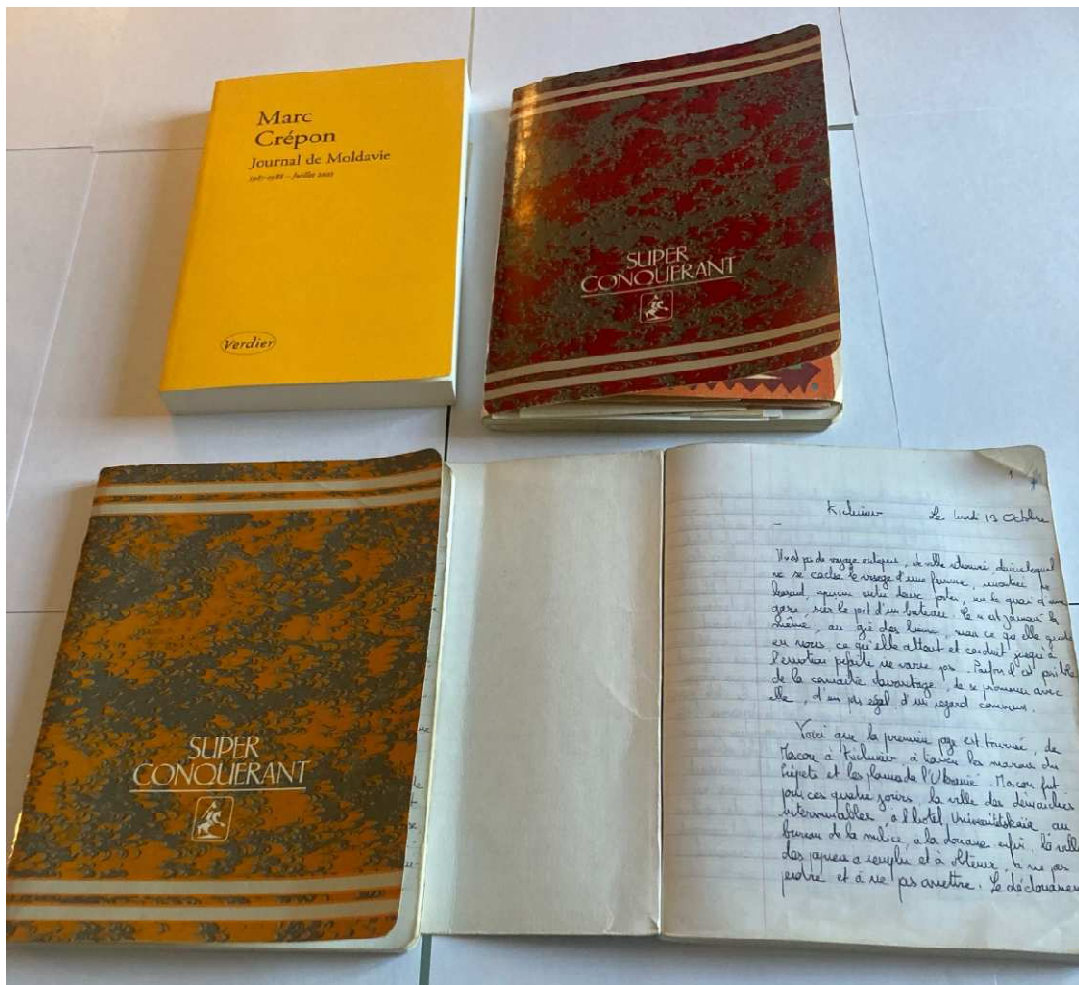 Marc
Crépon
Journal de Moldavie
1987-1988 – Juillet 2022
Verdier
SUPER
CONQUERANT
SUPER
CONQUERANT
1
Kichinev Le lundi 13 Octobre
Il n'est pas de voyage de ville
ne se cache le visage d'une femme, rencontrée par
hasard, entre deux portes, sur le quai d'une
gare, sur le pont d'un bateau. Ce n'est jamais la
même, au gré des lieux, mais ce qu'elle
en nous, ce qu'elle atteint et conduit jusqu'à
l'émotion parfaite ne varie pas. Parfois il est possible
de la connaître davantage, de se promener avec
elle, d'un pas égal, d'un regard commun.
Voici que la première page est tournée, de
Moscou à Kichinev à travers les marais du
Pripets et les plaines de l'Ukraine. Moscou fut
pour ces quatre jours, la ville des démarches
interminables, à l'hôtel Universitetskaïa au
bureau de la milice, à la douane enfin, la ville
des papiers à remplir et à obtenir, à ne pas
perdre et à ne pas omettre. Le dédouanement